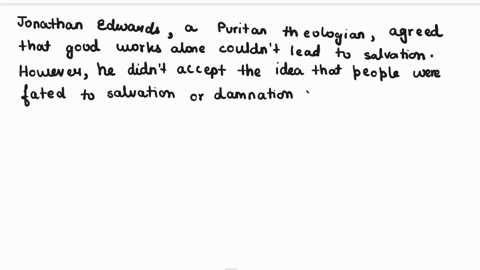 Jonathan Edwards, a Puritan theologian, agreed
that good works alone couldn't lead to salvation.
However, he didn't accept the idea that people were
fated to salvation or damnation